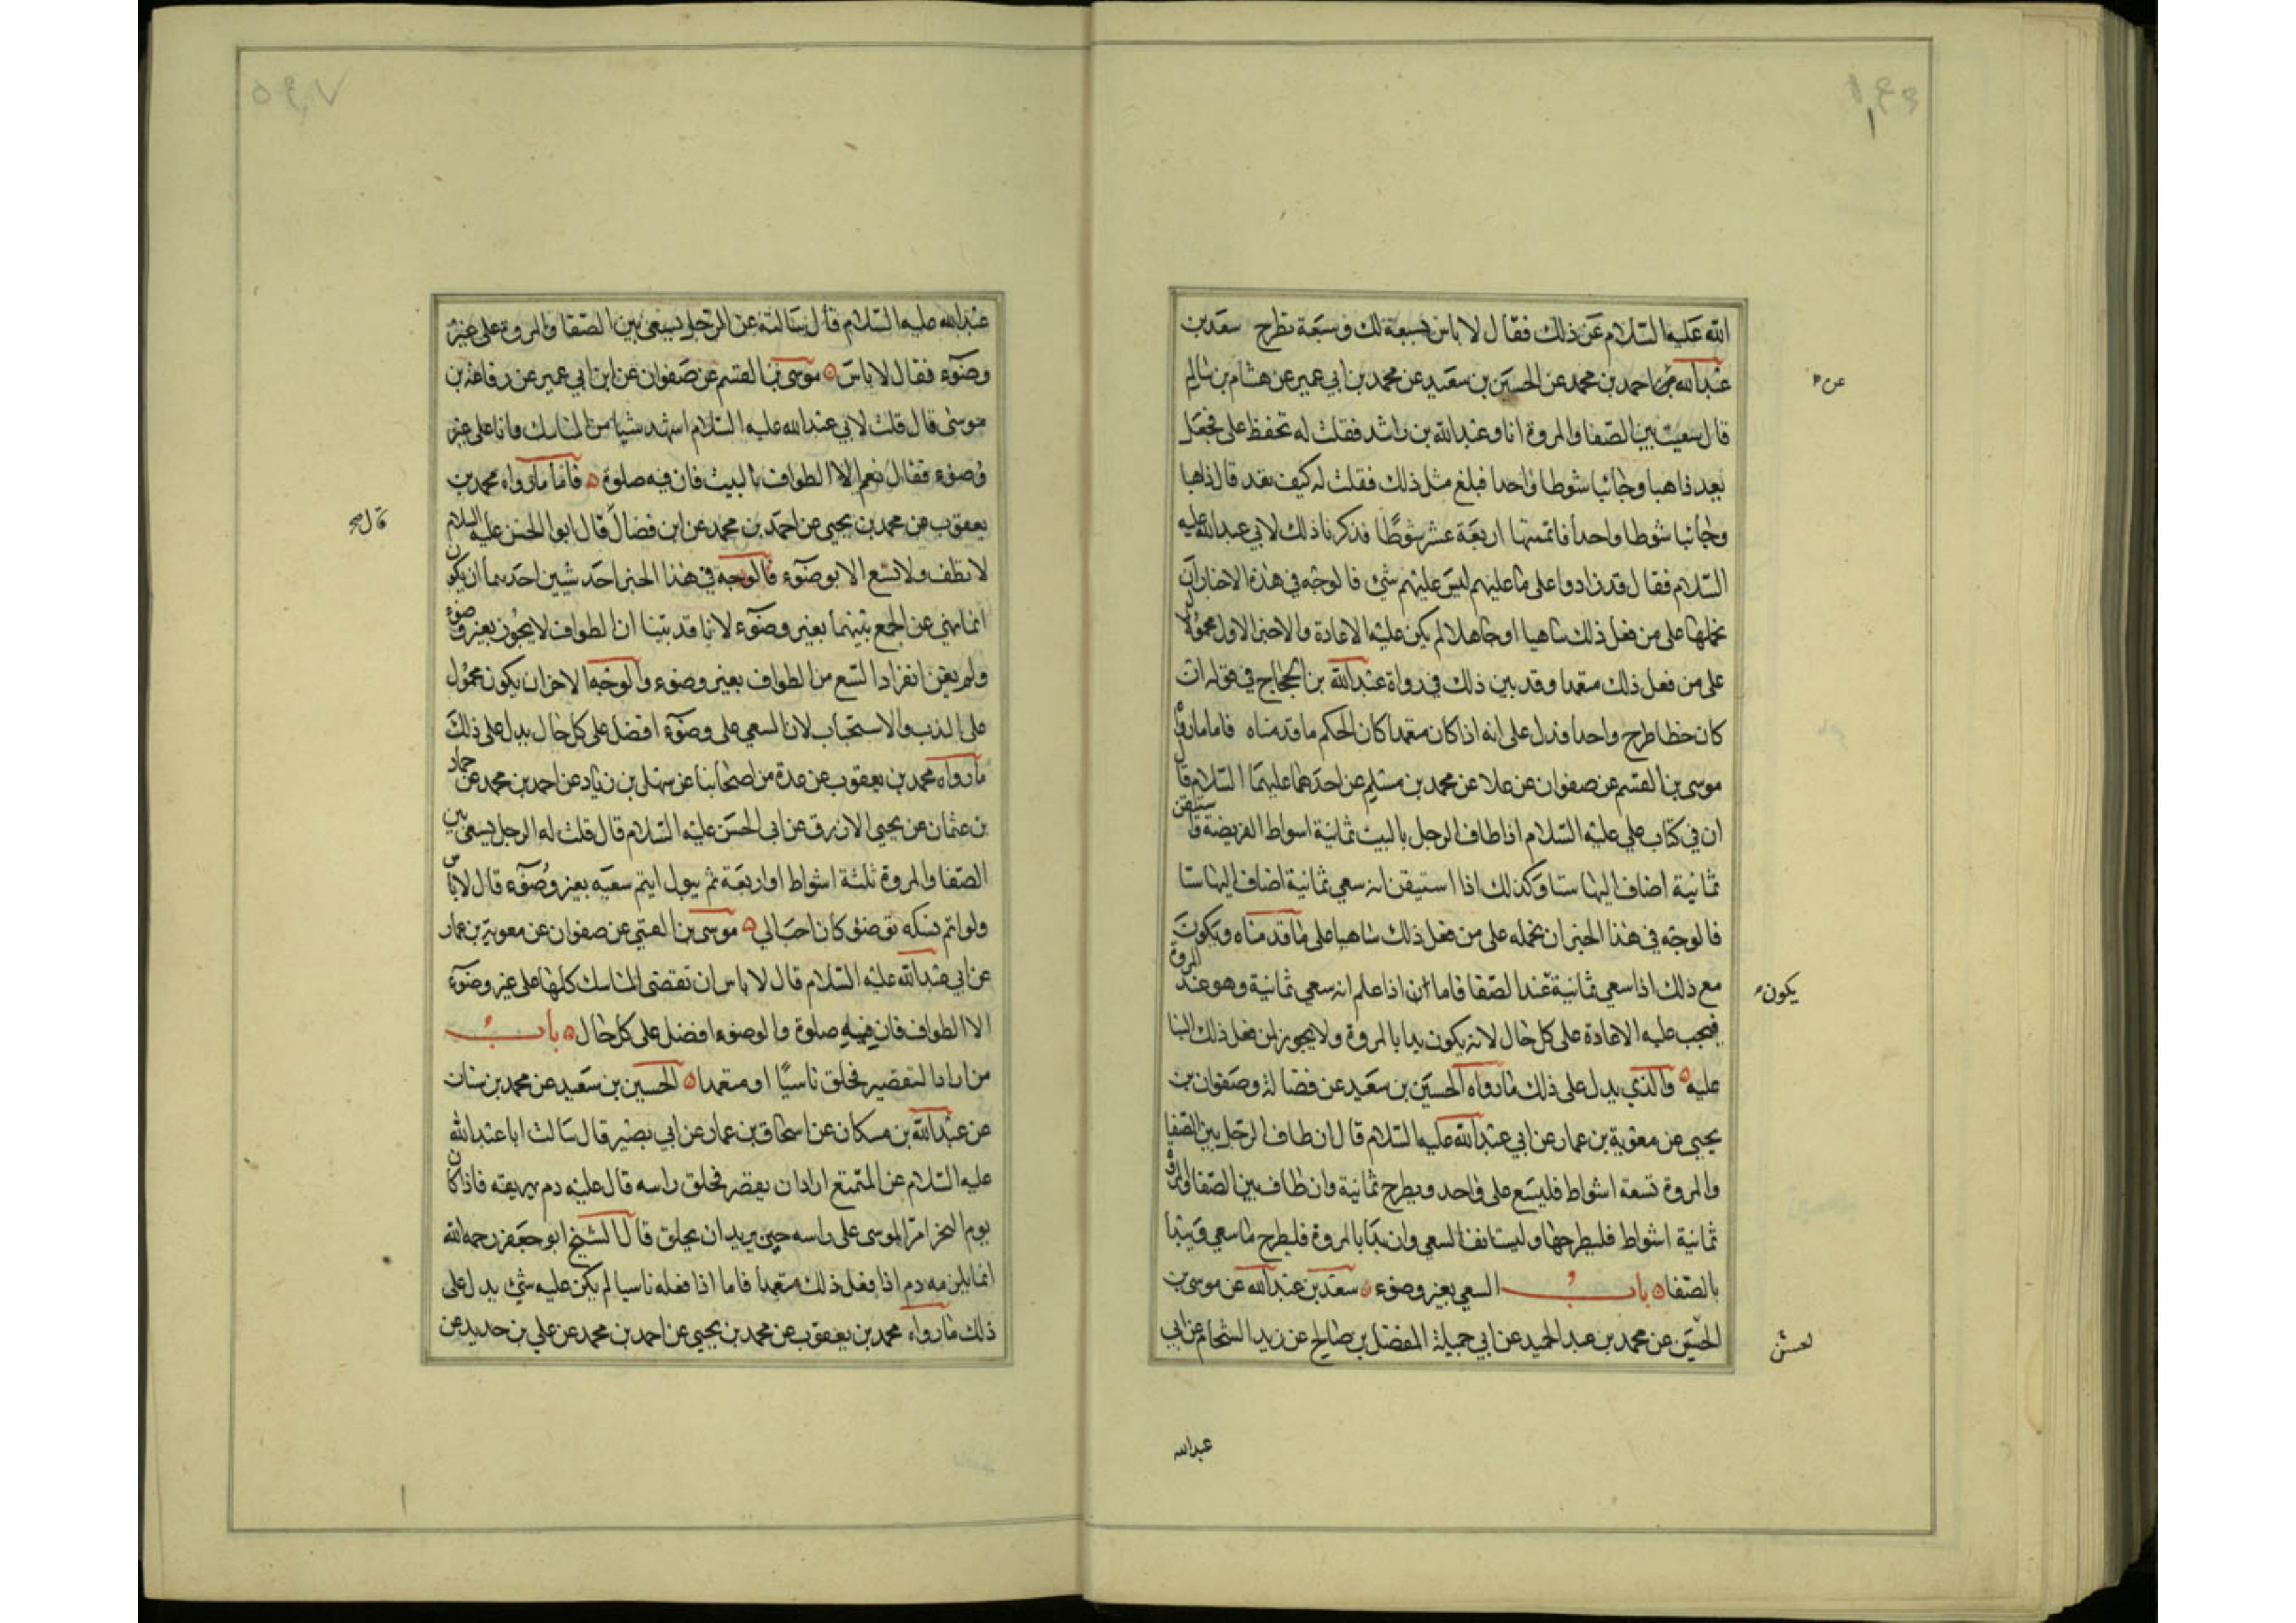 الله عليه السلام عن ذلك فقال لا باس سبعة لك وسبعة تطرح سعد بن
عبد الله عن احمد بن محمد عن الحسين بن سعيد عن محمد بن ابي عمير عن هشام بن سالم
قال سعيت بين الصفا والمروة انا وعبد الله بن راشد فقلت له تحفظ على فجعل
يعد ذاهبا وجائيا شوطا واحدا فبلغ مثل ذلك فقلت له كيف تعد قال ذاهبا
وجائيا شوطا واحدا فاتممتها اربعة عشر شوطًا فذكرنا ذلك لابي عبد الله عليه
السلام فقال قد زادوا على ما عليهم ليس عليهم شئ فالوجه في هذه الاخبار ان
نحملها على من فعل ذلك ساهيا او جاهلا لم يكن عليه الاعادة والاخبر الاول محمولا
على من فعل ذلك متعمدا وقد بين ذلك في رواة عبد الله بن الحجاج في قوله ان
كان خطا طرح واحدا فدل على انه اذا كان متعمدا كان الحكم ما قدمناه فاما ما رواه
موسى بن القسم عن صفوان عن علا عن محمد بن مسلم عن احدهما عليهما السلام قال
ان في كتاب علي عليه السلام اذا طاف الرجل بالبيت ثمانية اسواط الفريضة فاستيقن
ثمانية اضاف اليها ستا وكذلك اذا استيقن انه سعي ثمانية اضاف اليها ستا
فالوجه في هذا الخبر ان نحمله على من فعل ذلك ساهيا على ما قدمناه ويكون
مع ذلك اذا سعي ثمانية عند الصفا فاما ان اذا علم انه سعي ثمانية وهو عند المروة
فيجب عليه الاعادة على كل حال لانه يكون بدا بالمروة ولا يجوز لمن فعل ذلك البنا
عليه والذي يدل على ذلك ما رواه الحسين بن سعيد عن فضالة وصفوان بن
يحيى عن معوية بن عمار عن ابي عبد الله عليه السلام قال ان طاف الرجل بين الصفا
والمروة تسعة اشواط فليسع على واحد ويطرح ثمانية وان طاف بين الصفا والمروة
ثمانية اشواط فليطرحها وليستانف السعي وان بدا بالمروة فليطرح ما سعي ويبدا
بالصفا باب السعي بغير وضوء سعد بن عبد الله عن موسى بن
الحسين عن محمد بن عبد الحميد عن ابي جميلة المفضل بن صالح عن زيد الشحام عن ابي
عن
يكون
لحسن
عبدالله
عبد الله عليه السلام قال سالته عن الرجل يسعى بين الصفا والمروة على غير
وضوء فقال لا باس موسى بن القسم عن صفوان عن ابن ابي عمير عن رفاعة بن
موسى قال قلت لابي عبد الله عليه السلام اشهد شيا من المناسك وانا على غير
وضوء فقال نعم الا الطواف بالبيت فان فيه صلوة فاما ما رواه محمد بن
يعقوب عن محمد بن يحيى عن احمد بن محمد عن ابن فضال قال ابو الحسن عليه السلام
لا تطف ولا تسع الا بوضوء فالوجه في هذا الخبر احد شيين احدهما ان يكون
انما نهي عن الجمع بينهما بغير وضوء لانا قد بينا ان الطواف لا يجوز بغير وضوء
ولم يعن انفراد السع من الطواف بغير وضوء والوجه الاخر ان يكون محمول
على الندب والاستحباب لان السعي على وضوء افضل على كل حال يدل على ذلك
ما رواه محمد بن يعقوب عن عدة من اصحابنا عن سهل بن زياد عن احمد بن محمد عن حماد
بن عثمان عن يحيى الازرق عن ابي الحسن عليه السلام قال قلت له الرجل يسعى بين
الصفا والمروة ثلثة اشواط او اربعة ثم يبول ايتم سعيه بغير وضوء قال لا باس
ولو اتم نسكه بوضوء كان احب الي موسى بن القسم عن صفوان عن معوية بن عمار
عن ابي عبد الله عليه السلام قال لا باس ان تقضى المناسك كلها على غير وضوء
الا الطواف فان فيه صلوة والوضوء افضل على كل حال باب
من اراد التقصير فحلق ناسيًا او متعمدا الحسين بن سعيد عن محمد بن سنان
عن عبد الله بن مسكان عن اسحاق بن عمار عن ابي بصير قال سالت ابا عبد الله
عليه السلام عن المتمتع اراد ان يقصر فحلق راسه قال عليه دم يهريقه فاذا كان
يوم النحر امر الموسى على راسه حين يريد ان يحلق قال الشيخ ابو جعفر رحمه الله
انما يلزمه دم اذا فعل ذلك متعمدا فاما اذا فعله ناسيا لم يكن عليه شئ يدل على
ذلك ما رواه محمد بن يعقوب عن محمد بن يحيى عن احمد بن محمد عن علي بن حديد عن
قال صح